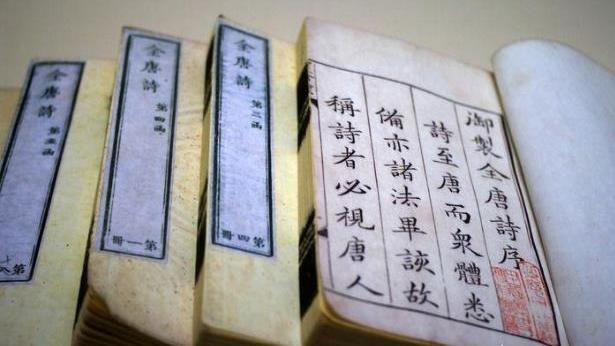 御製全唐詩序
詩至唐而衆體悉
備亦諸法畢該故
稱詩者必視唐人
全唐詩
第三函
第四冊
全唐詩
第四函
第一冊
全唐詩